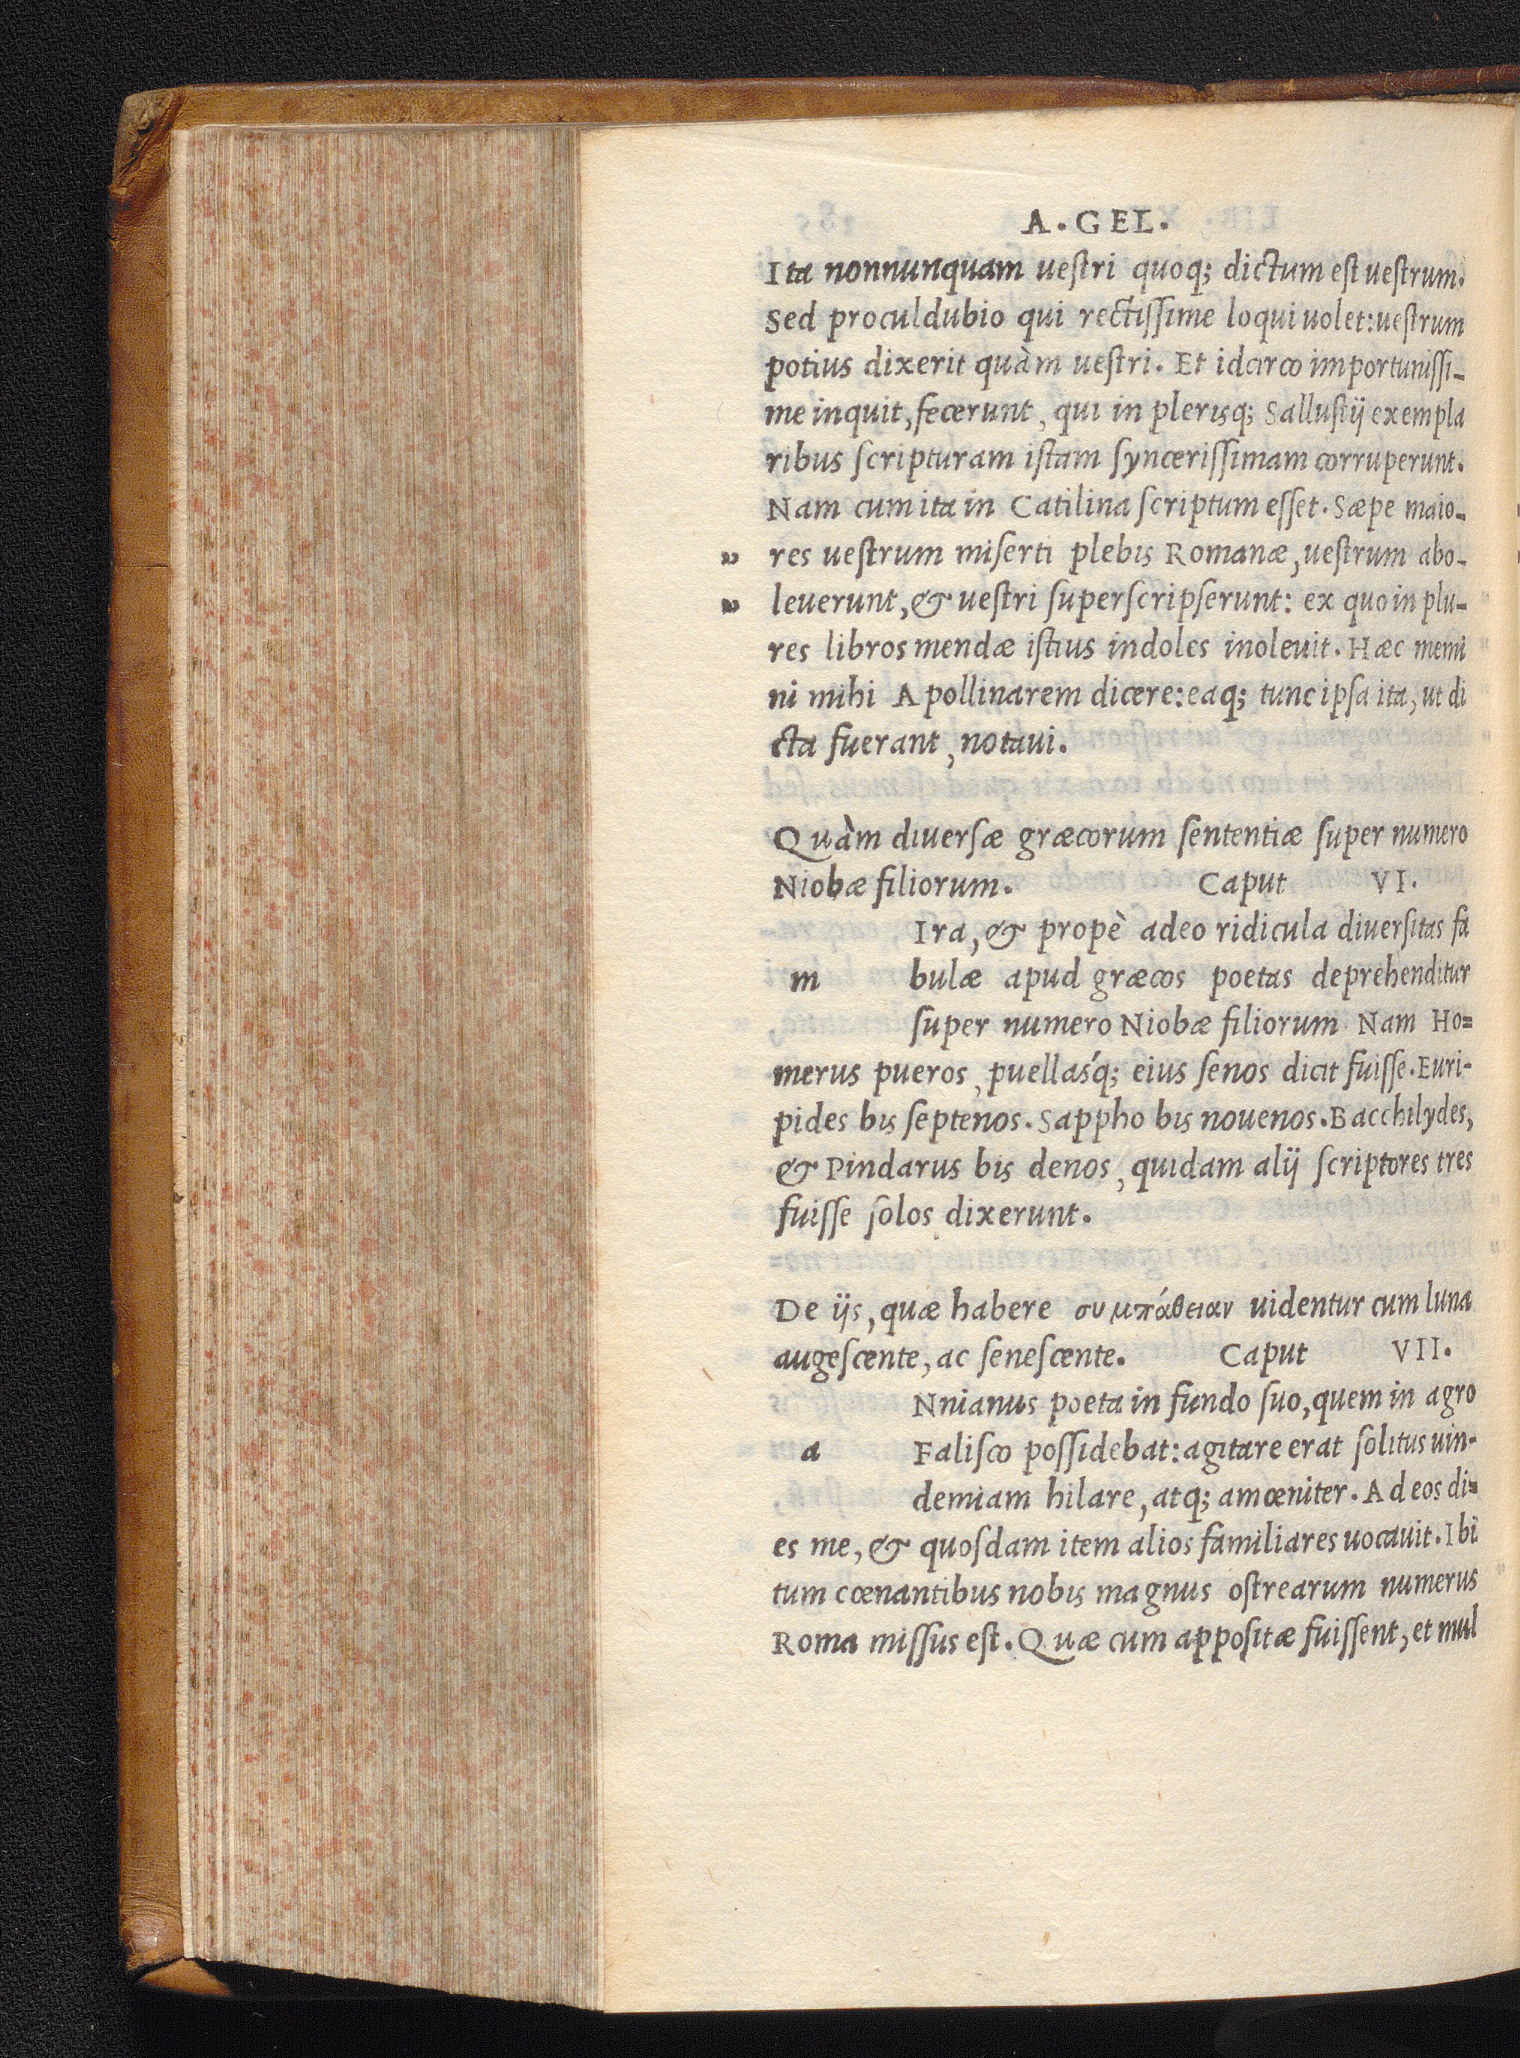 A. GEL.
Ita nonnunquam uestri quoq; dictum est uestrum.
Sed proculdubio qui rectissime loqui uolet: uestrum
potius dixerit quàm uestri. Et idcirco importunissi-
me inquit, fecerunt, qui in plerisq; Sallustij exempla
ribus scripturam istam syncerissimam corruperunt.
Nam cum ita in Catilina scriptum esset. Sæpe maio-
„ res uestrum miserti plebis Romanæ, uestrum abo-
„ leuerunt, & uestri superscripserunt: ex quo in plu-
res libros mendæ istius indoles inoleuit. Hæc memi
ni mihi Apollinarem dicere: eaq; tunc ipsa ita, ut di
cta fuerant, notaui.
Quàm diuersæ græcorum sententiæ super numero
Niobæ filiorum. Caput VI.
Ira, & propè adeo ridicula diuersitas fa
m bulæ apud græcos poetas deprehenditur
super numero Niobæ filiorum Nam Ho=
merus pueros, puellasq́; eius senos dicit fuisse. Euri-
pides bis septenos. Sappho bis nouenos. Bacchilydes,
& Pindarus bis denos, quidam alij scriptores tres
fuisse solos dixerunt.
De ijs, quæ habere συμπάθειαν uidentur cum luna
augescente, ac senescente. Caput VII.
Nnianus poeta in fundo suo, quem in agro
a Falisco possidebat: agitare erat solitus uin-
demiam hilare, atq; amœniter. Ad eos di=
es me, & quosdam item alios familiares uocauit. Ibi
tum cœnantibus nobis magnus ostrearum numerus
Roma missus est. Quæ cum appositæ fuissent, et mul